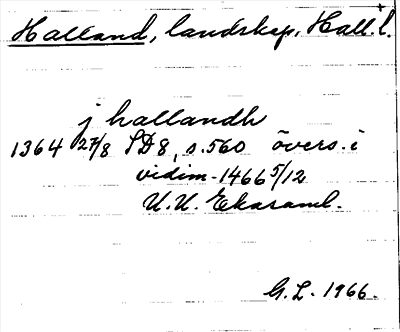 Halland, landskap, Hall. l.
j hallandh
1364 27/8 SD8, s.560 övers. i
vidim. 1466 5/12
U. U. Ekaraml.
G. L. 1966.